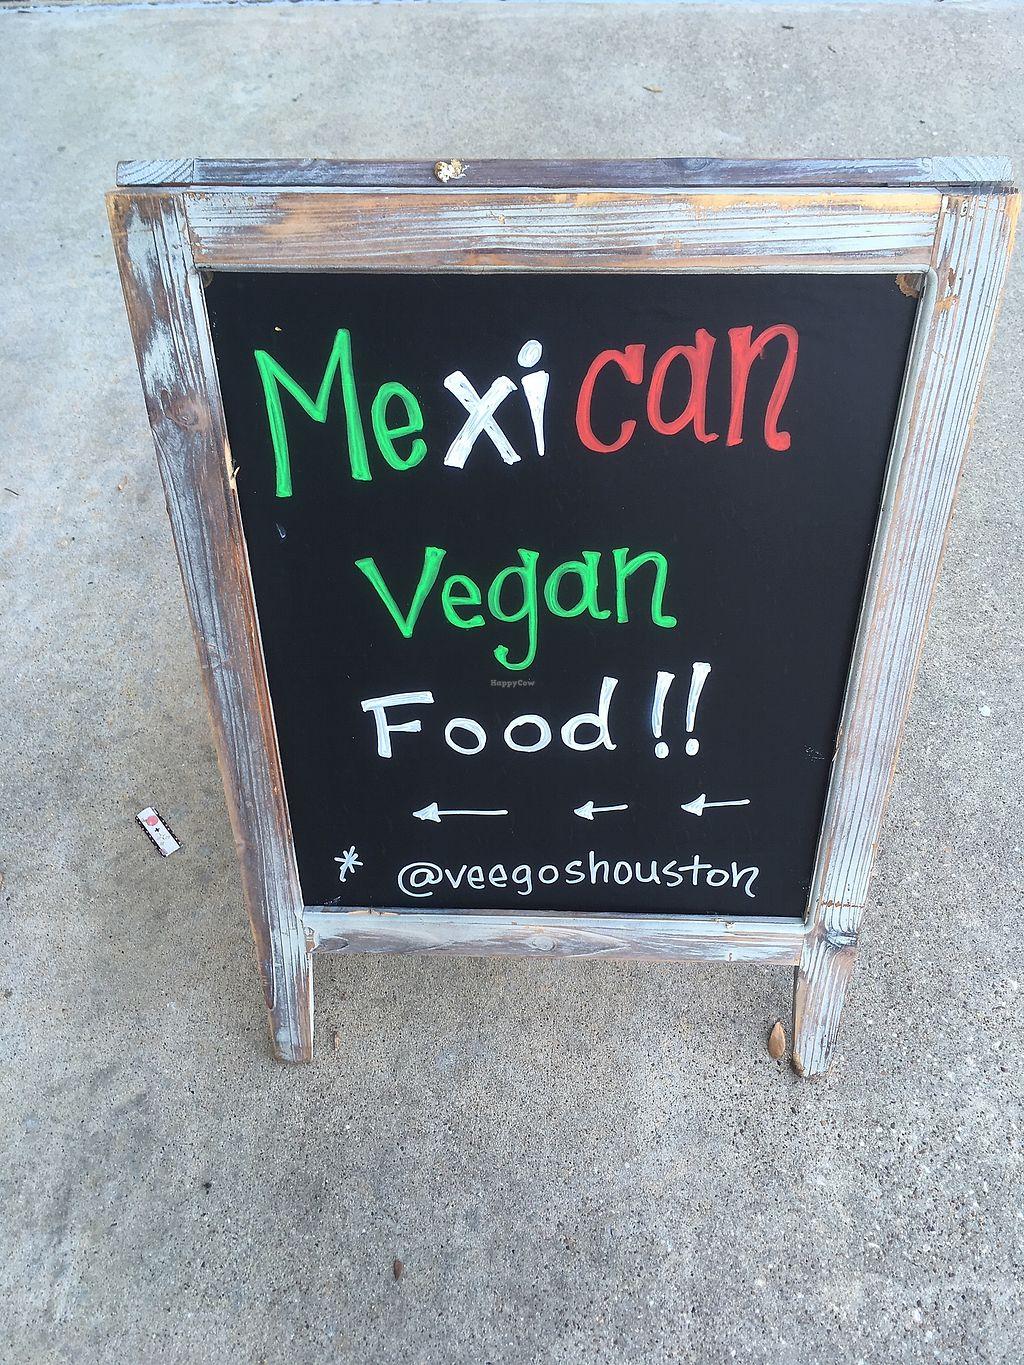 Mexican
Vegan
HappyCow
Food!!
* @veegoshouston